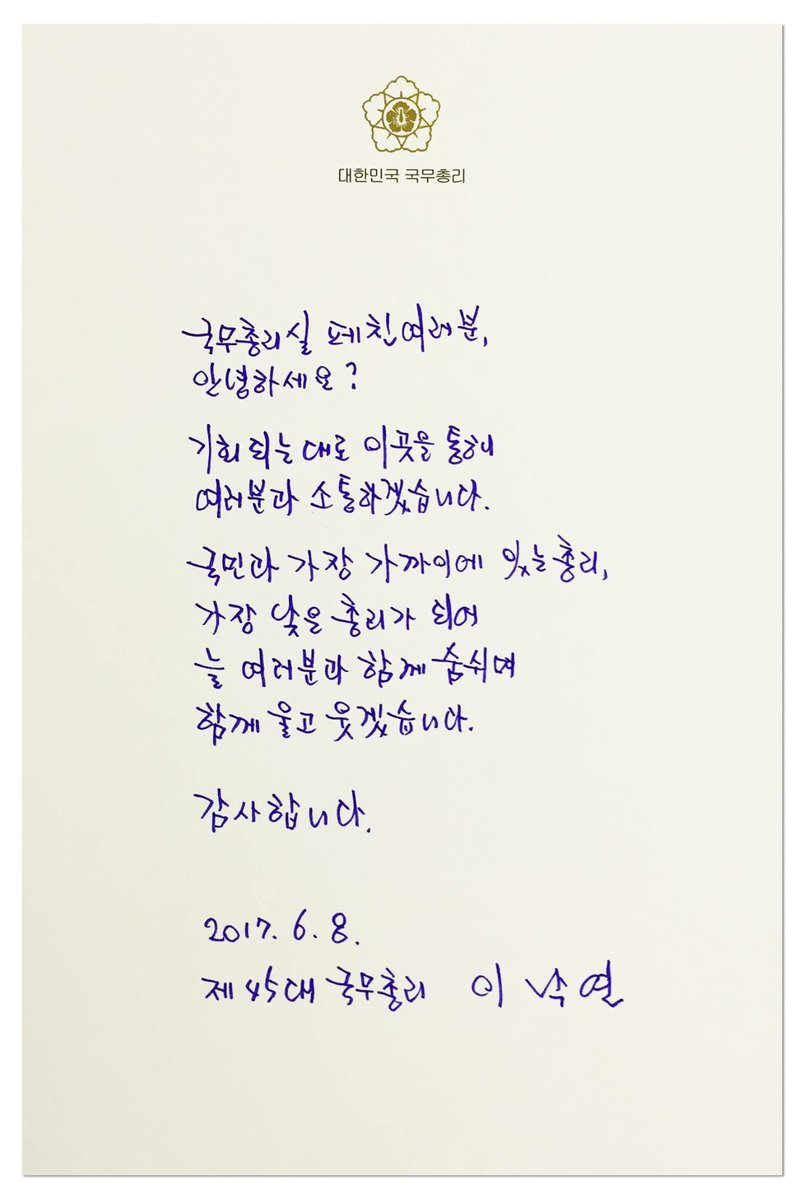 대한민국 국무총리
국무총리실 페친 여러분,
안녕하세요?
기회 되는 대로 이곳을 통해
여러분과 소통하겠습니다.
국민과 가장 가까이에 있는 총리,
가장 낮은 총리가 되어
늘 여러분과 함께 숨쉬며
함께 울고 웃겠습니다.
감사합니다.
2017. 6. 8.
제45대 국무총리 이낙연